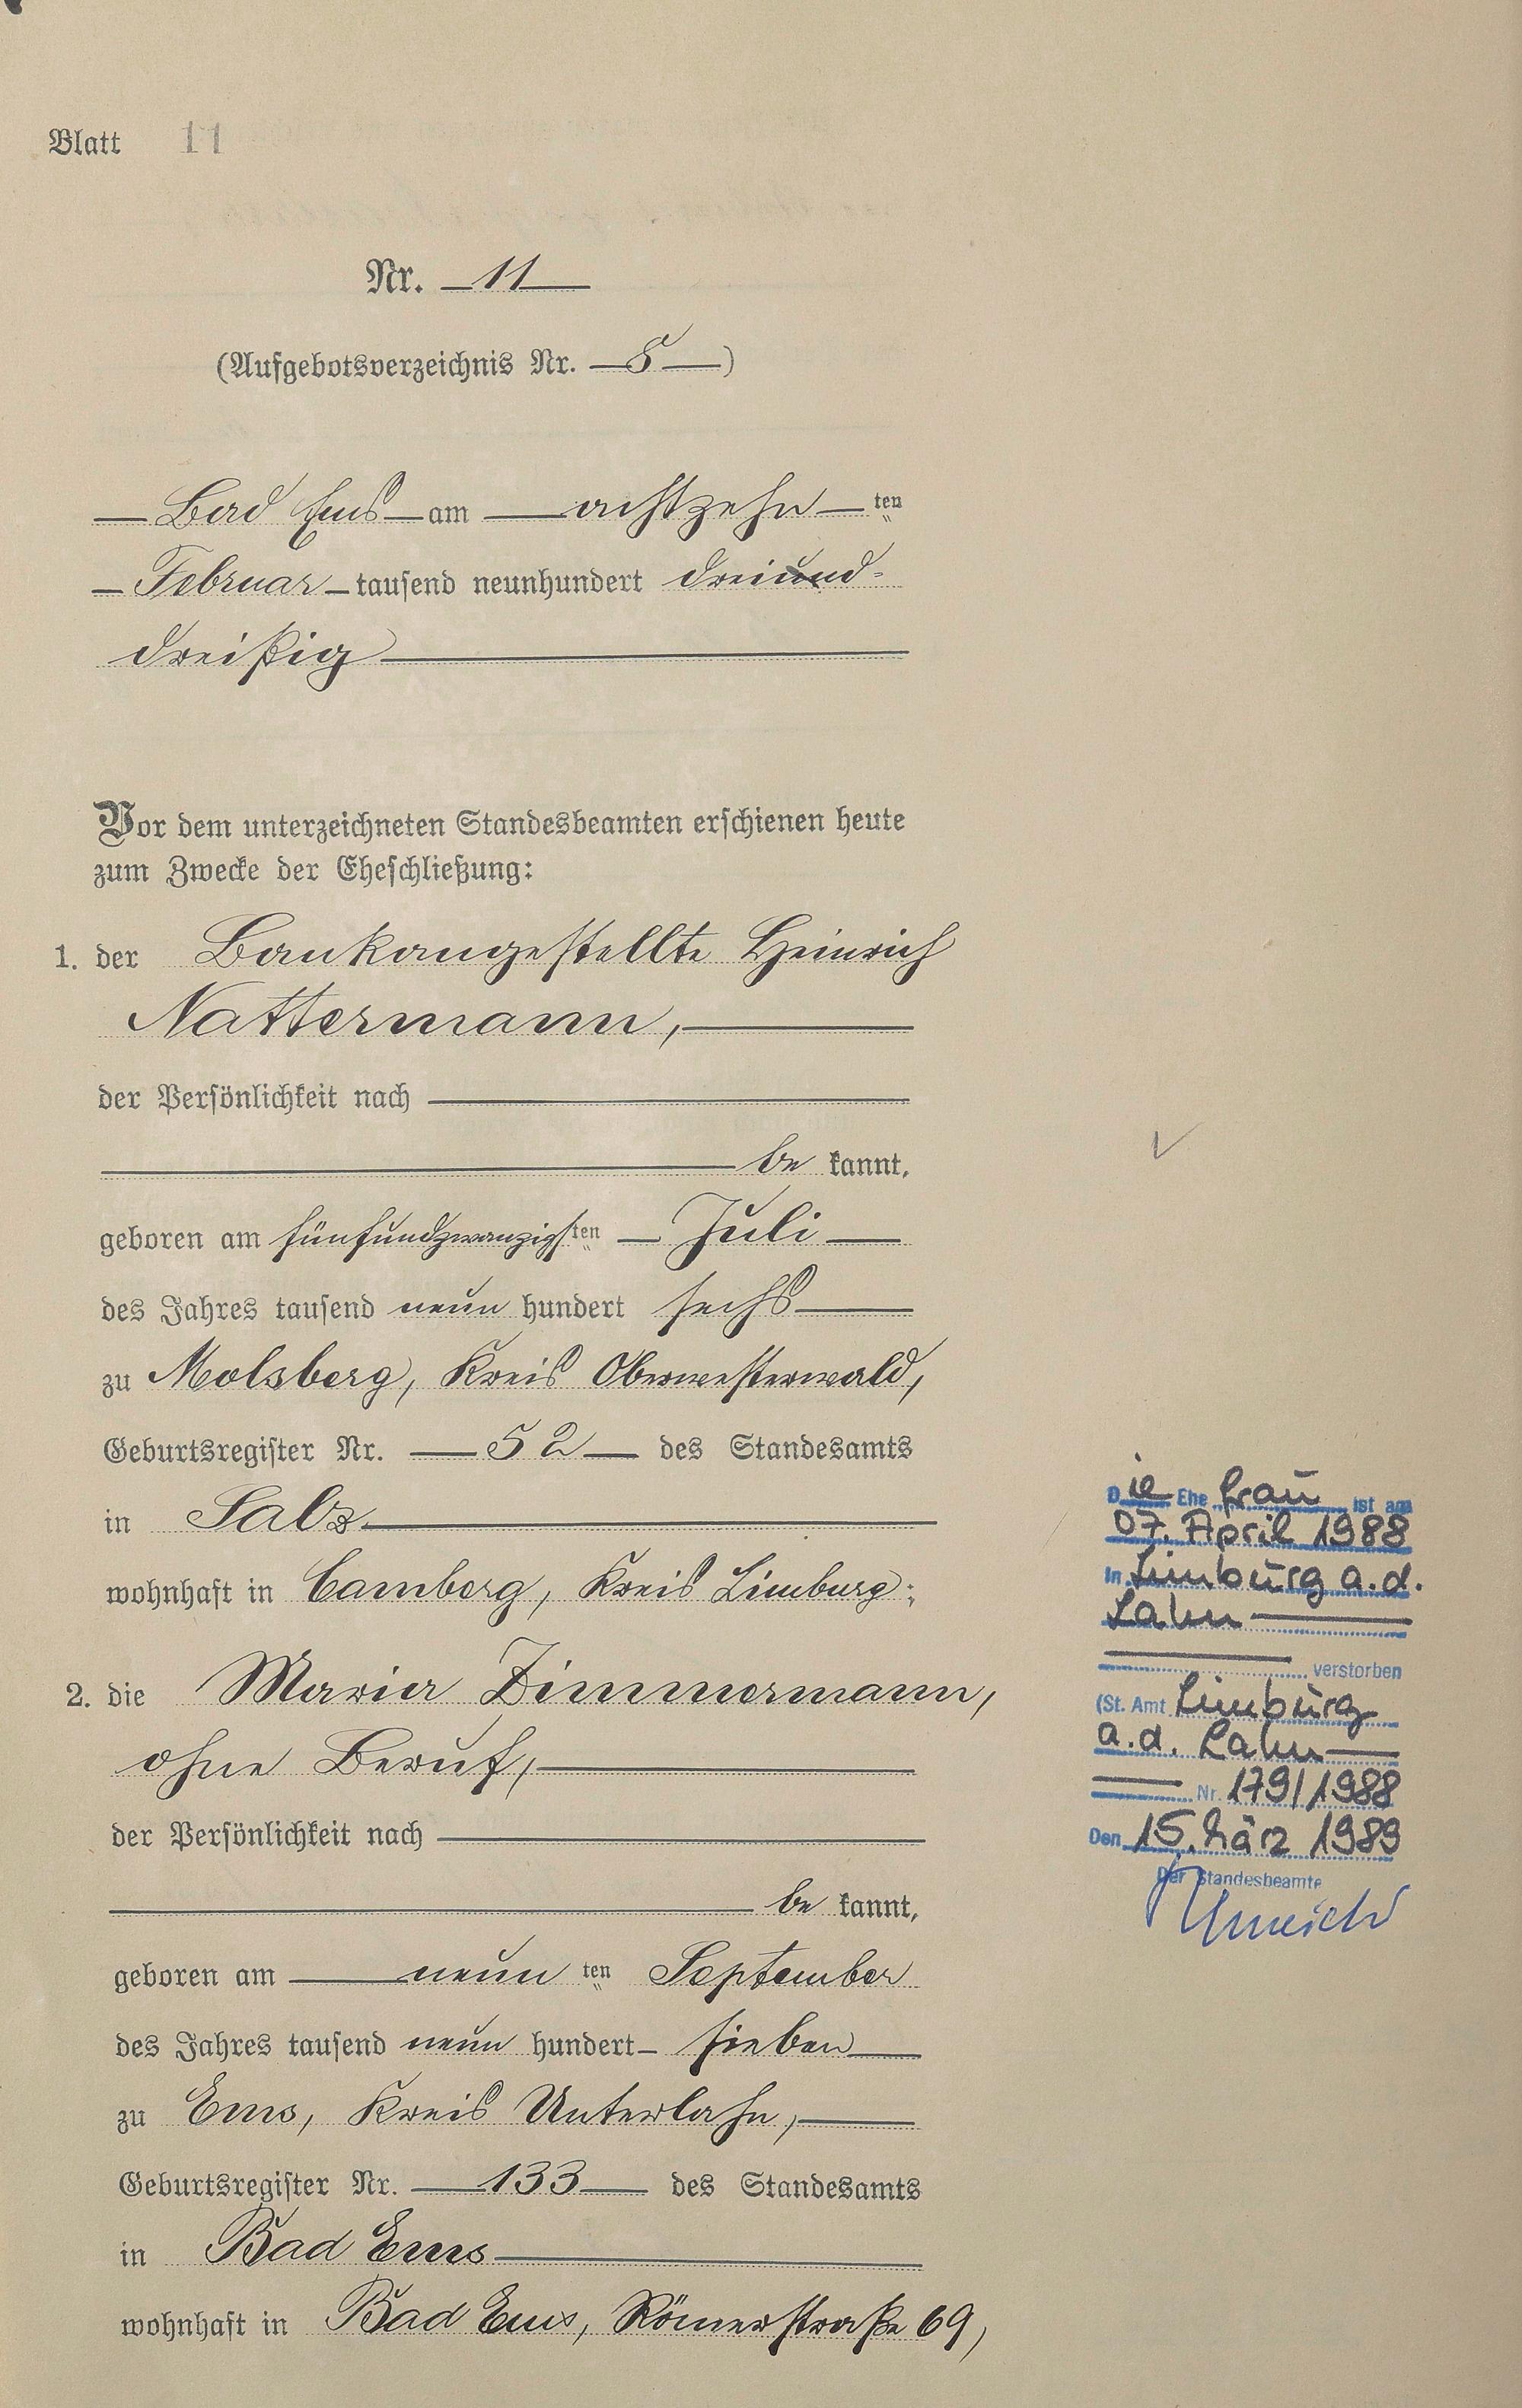 Blatt 11
Nr. 11
(Aufgebotsverzeichnis Nr. 8)
Bad Ems am achtzehn ten
Februar tausend neunhundert dreiund-
dreißig
Vor dem unterzeichneten Standesbeamten erschienen heute
zum Zwecke der Eheschließung:
1. der Bankangestellte Heinrich
Nattermann,
der Persönlichkeit nach
be kannt,
geboren am fünfundzwanzigsten Juli
des Jahres tausend neun hundert sechs
zu Molsberg, Kreis Oberwesterwald,
Geburtsregister Nr. 52 des Standesamts
in Salz
wohnhaft in Camberg, Kreis Limburg;
2. die Maria Zimmermann,
ohne Beruf,
der Persönlichkeit nach
be kannt,
geboren am neun ten September
des Jahres tausend neun hundert sieben
zu Ems, Kreis Unterlahn,
Geburtsregister Nr. 133 des Standesamts
in Bad Ems
wohnhaft in Bad Ems, Römerstraße 69,
Die Ehe frau ist am
07. April 1988
in Limburg a.d.
Lahn
verstorben
(St. Amt Limburg
a.d. Lahn
Nr. 179/1988
Den 15. März 1989
Der Standesbeamte